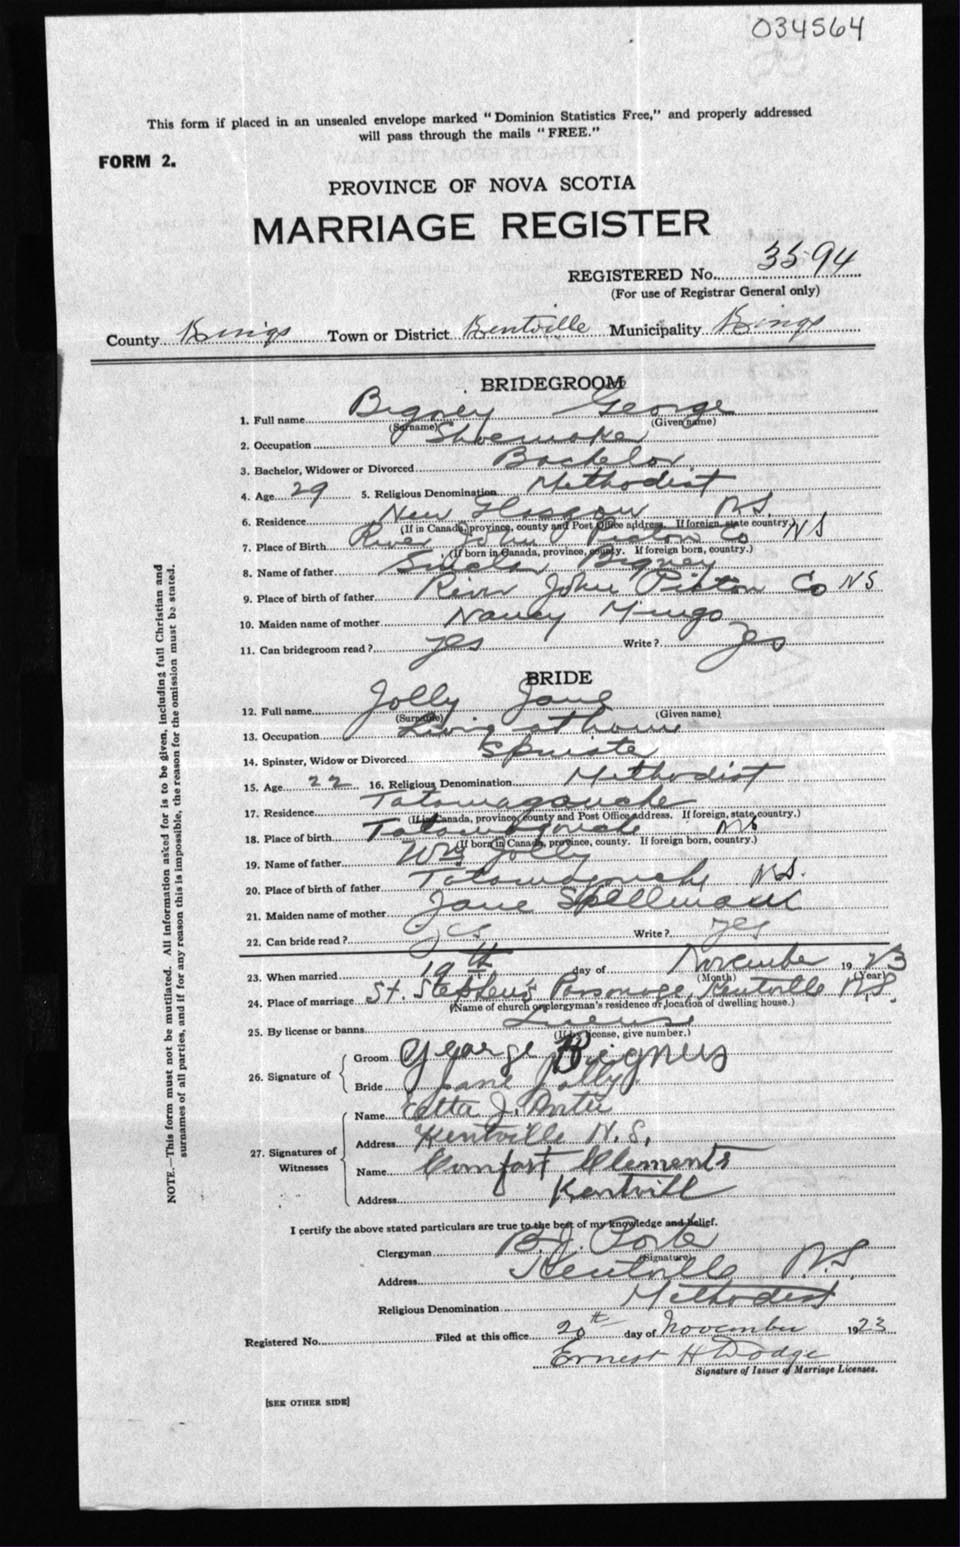 034564
This form if placed in an unsealed envelope marked "Dominion Statistics Free," and properly addressed
will pass through the mails "FREE."
FORM 2.
PROVINCE OF NOVA SCOTIA
MARRIAGE REGISTER
REGISTERED No. 3594
(For use of Registrar General only)
County Kings Town or District Kentville Municipality Kings
BRIDEGROOM
1. Full name Bigney George
(Surname) (Given name)
2. Occupation Shoemaker
3. Bachelor, Widower or Divorced Bachelor
4. Age 29 5. Religious Denomination Methodist
6. Residence New Glasgow N.S.
(If in Canada, province, county and Post Office address. If foreign, state country.)
7. Place of Birth River John Pictou Co NS
(If born in Canada, province, county. If foreign born, country.)
8. Name of father Bigney
9. Place of birth of father River John Pictou Co NS
10. Maiden name of mother Nancy Mingo
11. Can bridegroom read? yes Write? Yes
BRIDE
12. Full name Jolly Jane
(Surname) (Given name)
13. Occupation Living at home
14. Spinster, Widow or Divorced Spinster
15. Age 22 16. Religious Denomination Methodist
17. Residence Tatamagouche
(If Canada, province, county and Post Office address. If foreign, state country.)
18. Place of birth Tatamagouche NS
(If born in Canada, province, county. If foreign born, country.)
19. Name of father Wm Jolly
20. Place of birth of father Tatamagouche N.S.
21. Maiden name of mother Jane Spellman
22. Can bride read? yes Write? yes
23. When married 19th day of November 1923
(Month) (Year)
24. Place of marriage St. Stephen's Parsonage, Kentville N.S.
(Name of church or clergyman's residence or location of dwelling house.)
25. By license or banns License
(If license, give number.)
26. Signature of
Groom George Bigney
Bride Jane Jolly
27. Signatures of Witnesses
Name J. Porter
Address Kentville N.S.
Name Comfort Clements
Address Kentvill
I certify the above stated particulars are true to the best of my knowledge and belief.
Clergyman B. J. Porter
(Signature)
Address Kentville N.S.
Religious Denomination Methodist
Registered No. Filed at this office 20th day of November 1923
Ernest H Dodge
Signature of Issuer of Marriage Licenses.
[SEE OTHER SIDE]
NOTE.—This form must not be mutilated. All information asked for is to be given, including full Christian and
surnames of all parties, and if for any reason this is impossible, the reason for the omission must be stated.